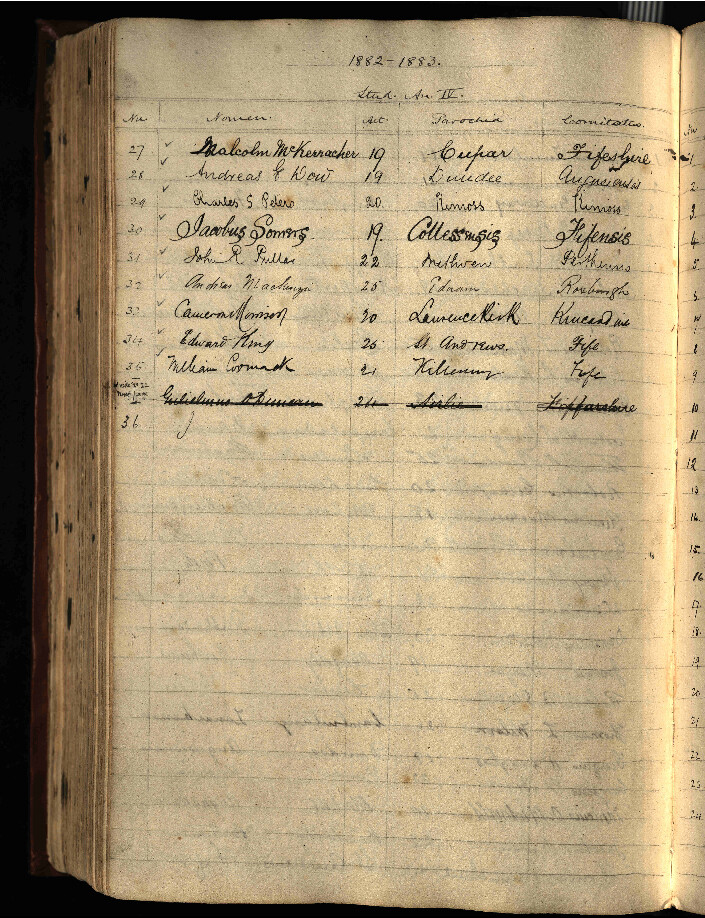 1882-1883.
Stud. An. IV.
No Nomen. Aet. Parochia Comitatus.
27 Malcolm McKerracher 19 Cupar Fifeshire
28 Andreas G Dow 19 Dundee
29 Charles S. Peters 20 Kinross Kinross
30 Jacobus Somers 19. Collessensis Fifensis
31 John R. Pullar 22 Methven
32 Andrew Mackenzie 25 Ednam Roxburgh
33 Cameron Morrison 20 Laurencekirk Kincardine
34 Edward King 25 St. Andrews. Fife
35 William Cormack 21 Kilrenny Fife
Gulielmus Duncan 21 Airlie Forfarshire
36